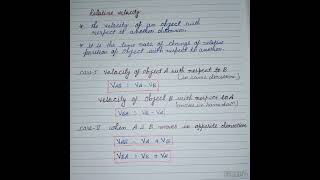 Relative velocity
* The velocity of an object with
respect to another observer.
* It is the time rate of change of relative
position of object with respect to another.
Case-I velocity of object A with respect to B
(in same direction)
VAB = VA - VB
velocity of object B with respect to A
(moves in same direcn)
VBA = VB - VA
Case-II when A & B moves in opposite direction
VAB = VA + VB
VBA = VB + VA